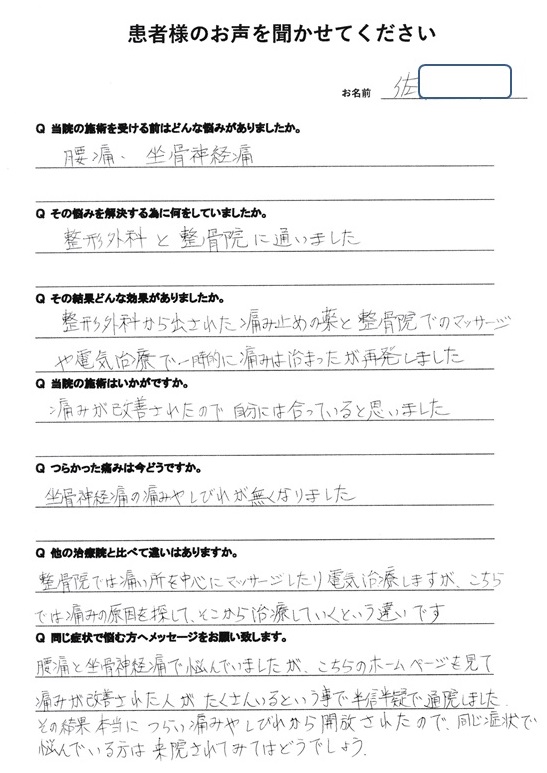 患者様のお声を聞かせてください
お名前 佐
Q 当院の施術を受ける前はどんな悩みがありましたか。
腰痛、坐骨神経痛
Q その悩みを解決する為に何をしていましたか。
整形外科と整骨院に通いました
Q その結果どんな効果がありましたか。
整形外科から出された痛み止めの薬と整骨院でのマッサージ
や電気治療で一時的に痛みは治まったが再発しました
Q 当院の施術はいかがですか。
痛みが改善されたので自分には合っていると思いました
Q つらかった痛みは今どうですか。
坐骨神経痛の痛みやしびれが無くなりました
Q 他の治療院と比べて違いはありますか。
整骨院では痛い所を中心にマッサージしたり電気治療しますが、こちら
では痛みの原因を探して、そこから治療していくという違いです
Q 同じ症状で悩む方へメッセージをお願い致します。
腰痛と坐骨神経痛で悩んでいましたが、こちらのホームページを見て
痛みが改善された人がたくさんいるという事で半信半疑で通院しました。
その結果本当につらい痛みやしびれから開放されたので、同じ症状で
悩んでいる方は来院されてみてはどうでしょう。